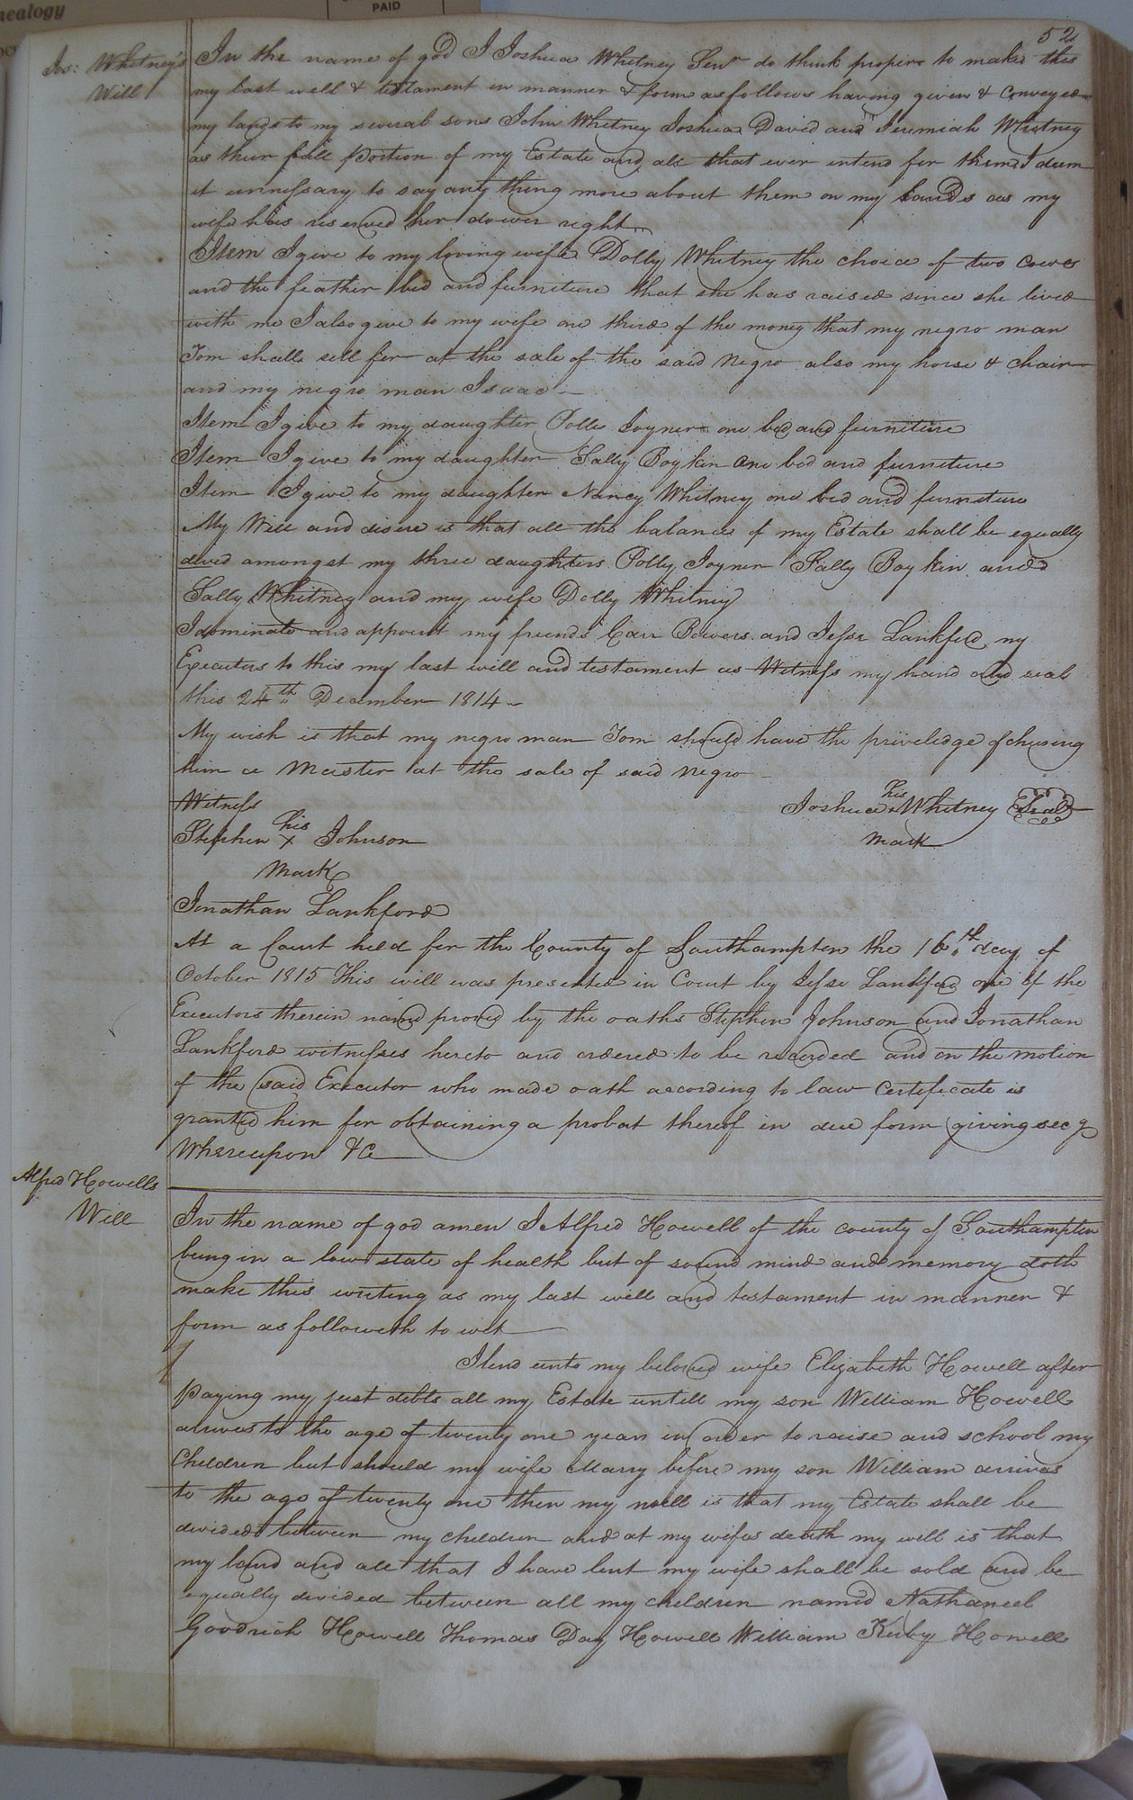 nealogy
PAID
52
Jos: Whitney's
Will
In the name of god I Joshua Whitney Senr do think propire to make this
my last will & testament in manner & form as follows having given & Conveyed
my lands to my several sons John Whitney Joshua David and Jeremiah Whitney
as their full portion of my Estate and all that ever intend for them I deem
it unnessary to say any thing more about them or my lands as my
wife has reserved her dower right
Item I give to my loving wife Dolly Whitney the choice of two cows
and the feather bed and furniture that she has raised since she lived
with me I also give to my wife one third of the money that my negro man
Tom shall sell for at the sale of the said Negro also my horse & chair
and my negro man Isaac
Item I give to my daughter Polly Joyner one bed and furniture
Item I give to my daughter Sally Boykin one bed and furniture
Item I give to my daughter Nancy Whitney one bed and furniture
My Will and disire is that all the balance of my Estate shall be equally
devid amongst my three daughters Polly Joyner Sally Boykin and
Sally Whitney and my wife Dolly Whitney
I nominate and appoint my friends Carr Bowers and Jesse Lankford my
Executors to this my last will and testament as Witness my hand and seal
this 24th December 1814
My wish is that my negro man Tom should have the priviledge of chusing
him a Master at the sale of said Negro
Witness
Joshua his x Whitney Seal
mark
Stephen his x Johnson
mark
Jonathan Lankford
At a Court held for the County of Southampton the 16th day of
October 1815 This will was presented in Court by Jesse Lankford one of the
Executors therein named proved by the oaths Stephen Johnson and Jonathan
Lankford witnesses hereto and ordered to be recorded and on the motion
of the said Executor who made oath according to law certificate is
granted him for obtaining a probat thereof in due form giving secy
Whereupon &c
Alfred Howells
Will
In the name of god amen I Alfred Howell of the county of Southampton
being in a low state of health but of sound mind and memory doth
make this writing as my last will and testament in manner &
form as followeth to wit
I lend unto my beloved wife Elizabeth Howell after
paying my just debts all my Estate untill my son William Howell
arives to the age of twenty one years in order to raise and school my
Children but should my wife Marry before my son William arrives
to the age of twenty one then my will is that my Estate shall be
divided between my children and at my wifes death my will is that
my land and all that I have lent my wife shall be sold and be
equally divided between all my children named Nathaniel
Goodrich Howell Thomas Day Howell William Kirby Howell